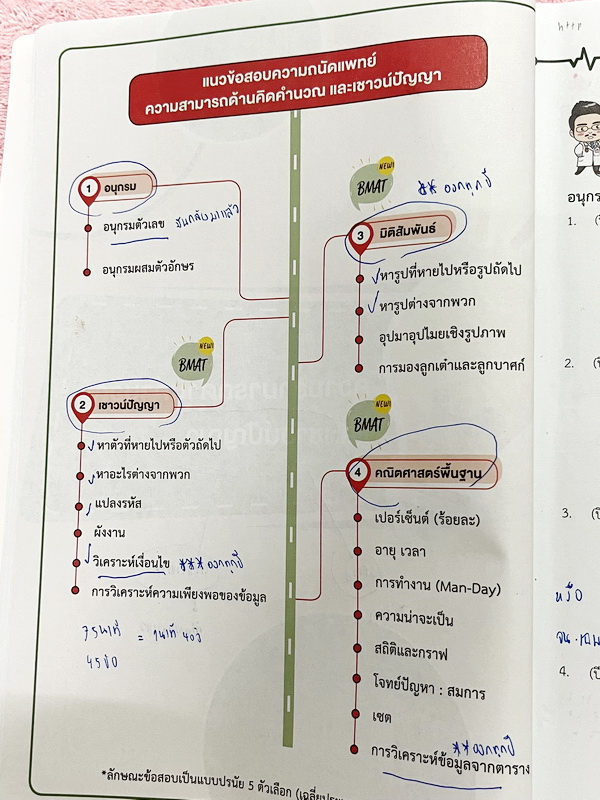 แนวข้อสอบความถนัดแพทย์
ความสามารถด้านคิดคำนวณ และเชาวน์ปัญญา
1 อนุกรม
อนุกรมตัวเลข
อนุกรมผสมตัวอักษร
NEW!
BMAT
2 เชาวน์ปัญญา
หาตัวที่หายไปหรือตัวถัดไป
หาอะไรต่างจากพวก
แปลงรหัส
ผังงาน
วิเคราะห์เงื่อนไข *** ออกทุกปี
การวิเคราะห์ความเพียงพอของข้อมูล
75 นาที = 1 นาที 40 วิ
45 ข้อ
NEW!
BMAT ** ออกทุกปี
3 มิติสัมพันธ์
หารูปที่หายไปหรือรูปถัดไป
หารูปต่างจากพวก
อุปมาอุปไมยเชิงรูปภาพ
การมองลูกเต๋าและลูกบาศก์
NEW!
BMAT
4 คณิตศาสตร์พื้นฐาน
เปอร์เซ็นต์ (ร้อยละ)
อายุ เวลา
การทำงาน (Man-Day)
ความน่าจะเป็น
สถิติและกราฟ
โจทย์ปัญหา : สมการ
เซต
** ออกทุกปี
การวิเคราะห์ข้อมูลจากตาราง
*ลักษณะข้อสอบเป็นแบบปรนัย 5 ตัวเลือก
1.
2.
3.
หรือ
4.